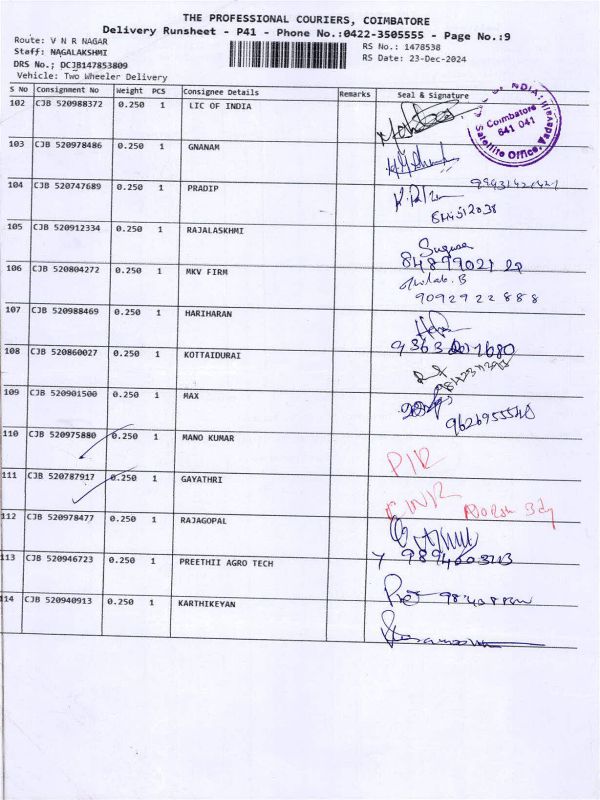 THE PROFESSIONAL COURIERS, COIMBATORE
Delivery Runsheet - P41 - Phone No.:0422-3505555 - Page No.:9
Route: V N R NAGAR
Staff: NAGALAKSHMI
DRS No.; DCJB147853809
Vehicle: Two Wheeler Delivery
RS No.: 1478538
RS Date: 23-Dec-2024
S No Consignment No Weight PCS Consignee Details Remarks Seal & Signature
102 CJB 520988372 0.250 1 LIC OF INDIA
Coimbatore
641 041
Satellite Office,
103 CJB 520978486 0.250 1 GNANAM
104 CJB 520747689 0.250 1 PRADIP
105 CJB 520912334 0.250 1 RAJALASKHMI
106 CJB 520804272 0.250 1 MKV FIRM
9092922888
107 CJB 520988469 0.250 1 HARIHARAN
108 CJB 520860027 0.250 1 KOTTAIDURAI
109 CJB 520901500 0.250 1 MAX
9626955540
110 CJB 520975880 0.250 1 MANO KUMAR
111 CJB 520787917 0.250 1 GAYATHRI
112 CJB 520978477 0.250 1 RAJAGOPAL
113 CJB 520946723 0.250 1 PREETHII AGRO TECH
114 CJB 520940913 0.250 1 KARTHIKEYAN